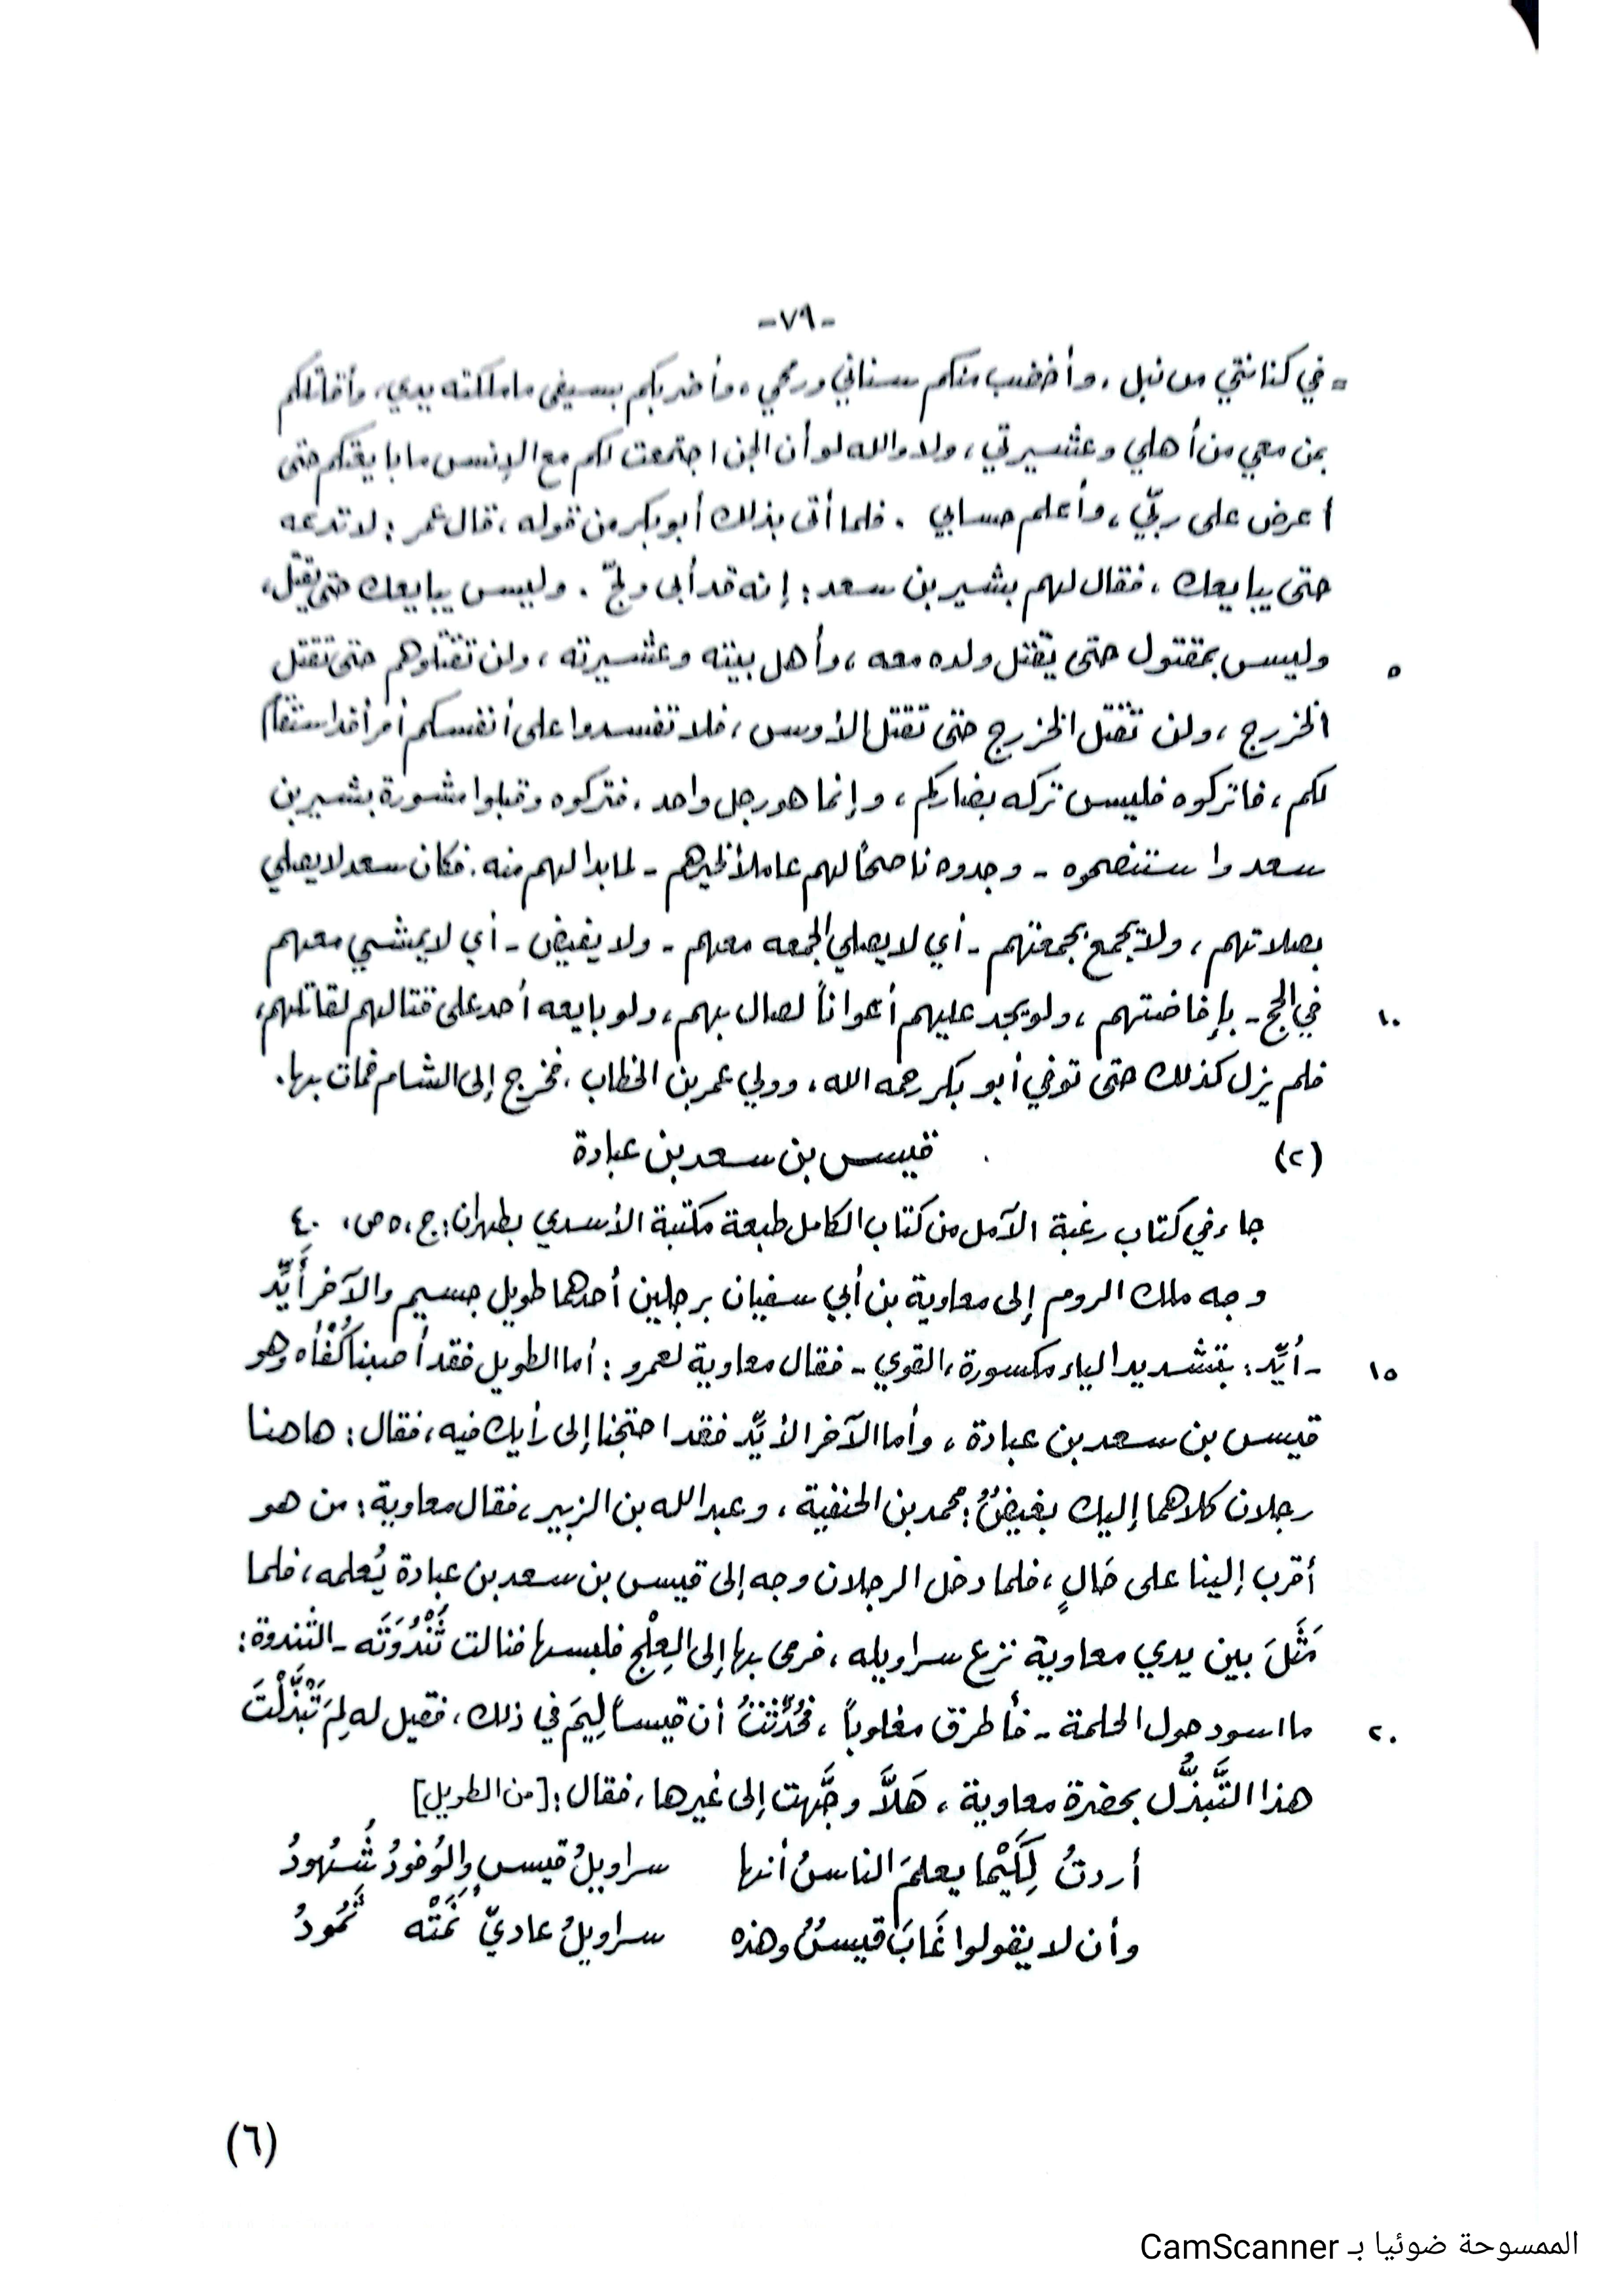 -٧٩-
= في كنانتي من نبل ، وأخضب منكم سناني ورمحي ، وأضربكم بسيفي ما ملكته يدي ، وأقاتلكم
بمن معي من أهلي وعشيرتي ، ولا والله لو أن الجن اجتمعت لكم مع الإنس ما بايعتكم حتى
أعرض على ربّي ، وأعلم حسابي . فلما أتى بذلك أبو بكر من قوله ، قال عمر : لا تدعه
حتى يبايعك ، فقال لهم بشير بن سعد : إنه قد أبى ولجّ . وليس يبايعك حتى يقتل ،
٥ وليس بمقتول حتى يقتل ولده معه ، وأهل بيته وعشيرته ، ولن تقتلوهم حتى تقتل
الخزرج ، ولن تقتل الخزرج حتى تقتل الأوس ، فلا تفسدوا على أنفسكم أمراً قد استقام
لكم ، فاتركوه فليس تركه بضاركم ، وإنما هو رجل واحد . فتركوه وقبلوا مشورة بشير بن
سعد واستنصحوه - وجدوه ناصحاً لهم عاملاً لخيرهم - لما بدا لهم منه . فكان سعد لا يصلي
بصلاتهم ، ولا يجمع بجمعتهم - أي لا يصلي الجمعه معهم - ولا يفيض - أي لا يمشي معهم
١٠ في الحج - بإفاضتهم ، ولو يجد عليهم أعواناً لصال بهم ، ولو بايعه أحد على قتالهم لقاتلهم ،
فلم يزل كذلك حتى توفي أبو بكر رحمه الله ، وولي عمر بن الخطاب ، فخرج إلى الشام فمات بها .
(٢) قيس بن سعد بن عبادة
جاء في كتاب رغبة الآمل من كتاب الكامل طبعة مكتبة الأسدي بطهران : ج ، ٥ ص ، ٤٠
وجه ملك الروم إلى معاوية بن أبي سفيان برجلين أحدهما طويل جسيم والآخر أَيِّد
١٥ - أيِّد : بتشديد الياء مكسورة ، القوي - فقال معاوية لعمرو : أما الطويل فقد أصبنا كُفْأَه وهو
قيس بن سعد بن عبادة ، وأما الآخر الأيِّد فقد احتجنا إلى رأيك فيه ، فقال : هاهنا
رجلان كلاهما إليك بغيضٌ : محمد بن الحنفية ، وعبد الله بن الزبير ، فقال معاوية : من هو
أقرب إلينا على حَالٍ ، فلما دخل الرجلان وجه إلى قيس بن سعد بن عبادة يُعلمه ، فلما
مَثَلَ بين يدي معاوية نزع سراويله ، فرمى بها إلى العِلْج فلبسها فنالت ثَنْدُوَتَه - الثندوة :
٢٠ ما اسود حول الحلمة - فأطرق مغلوباً ، فحُدِّثْتُ أن قيساً لِيمَ في ذلك ، فقيل له لِمَ تَبَذَّلْتَ
هذا التَّبَذُّل بحضرة معاوية ، هَلاَّ وجَّهت إلى غيرها ، فقال : [من الطويل]
أردتُ لِكَيْما يعلمَ الناسُ أنها سراويلُ قيسٍ والوُفودُ شُهودُ
وأن لا يقولوا غَابَ قيسٌ وهذه سراويلُ عاديٍّ نَمَتْه ثَمُودُ
(٦)
الممسوحة ضوئيا بـ CamScanner